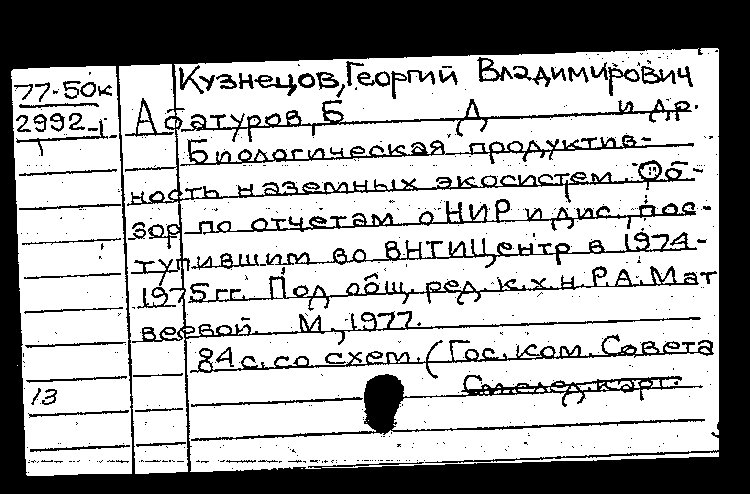 Кузнецов, Георгий Владимирович
77-50к
2992-1
Абатуров, Б Д и др.
Биологическая продуктив-
ность наземных экосистем. Об-
зор по отчетам о НИР и дис., пос-
тупившим во ВНТИЦентр в 1974-
1975 гг. Под общ. ред. к.х.н. Р.А. Мат
веевой. М., 1977.
84 с. со схем. (Гос. ком. Совета
См. след. карт.
13